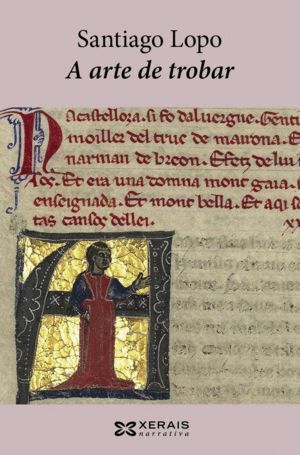 Santiago Lopo
A arte de trobar
Na castelloza. si fo daluergne. Gentil
moiller del truc de mairona. E
narman de breon. Efetz de lui
sos. Et era una domna mout gaia.
enseignada. Et mout bella. Et aqi so
tas cansos de llei.
XERAIS
narrativa